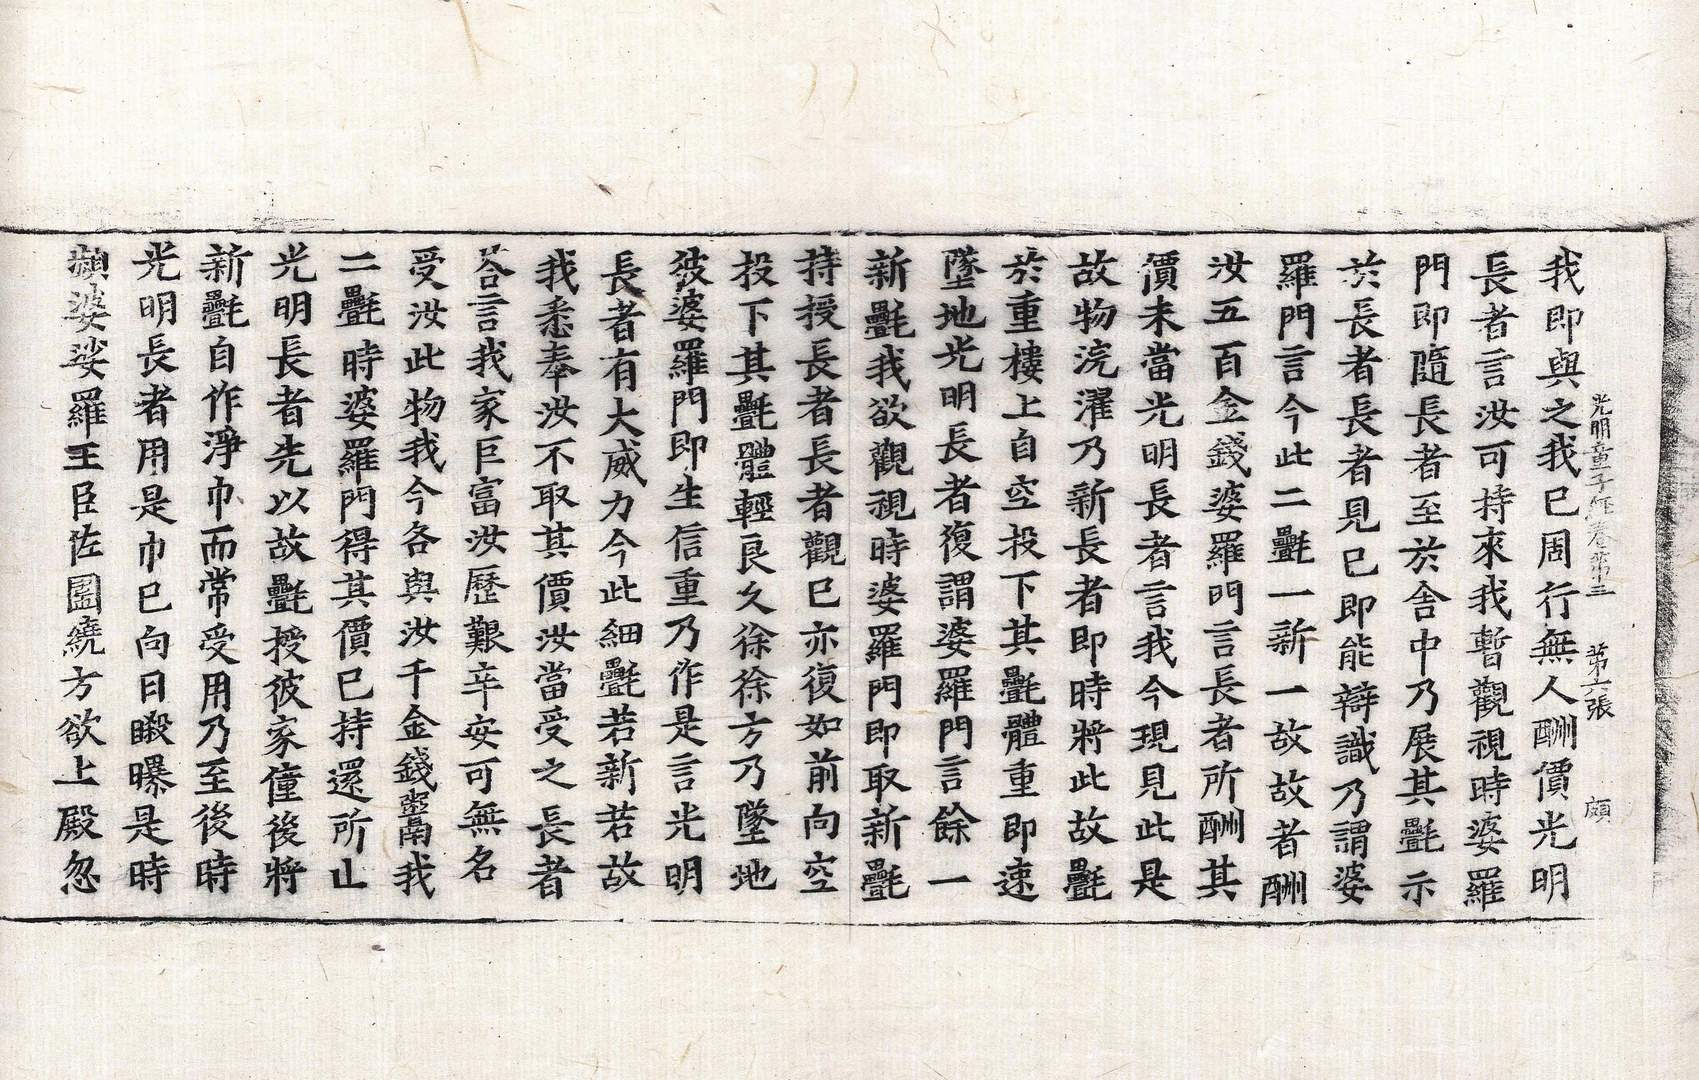 光明童子經卷第三　第六張　頗
我即與之我已周行無人酬價光明
長者言汝可持來我暫觀視時婆羅
門即隨長者至於舍中乃展其㲲示
於長者長者見已即能辯識乃謂婆
羅門言今此二㲲一新一故故者酬
汝五百金錢婆羅門言長者所酬其
價未當光明長者言我今現見此是
故物浣濯乃新長者即時將此故㲲
於重樓上自空投下其㲲體重即速
墜地光明長者復謂婆羅門言餘一
新㲲我欲觀視時婆羅門即取新㲲
持授長者長者觀已亦復如前向空
投下其㲲體輕良久徐徐方乃墜地
彼婆羅門即生信重乃作是言光明
長者有大威力今此細㲲若新若故
我悉奉汝不取其價汝當受之長者
荅言我家巨富汝歷艱辛安可無名
受汝此物我今各與汝千金錢鬻我
二㲲時婆羅門得其價已持還所止
光明長者先以故㲲授彼家僮後將
新㲲自作淨巾而常受用乃至後時
光明長者用是巾已向日㬠曝是時
頻婆娑羅王臣佐圍繞方欲上殿忽